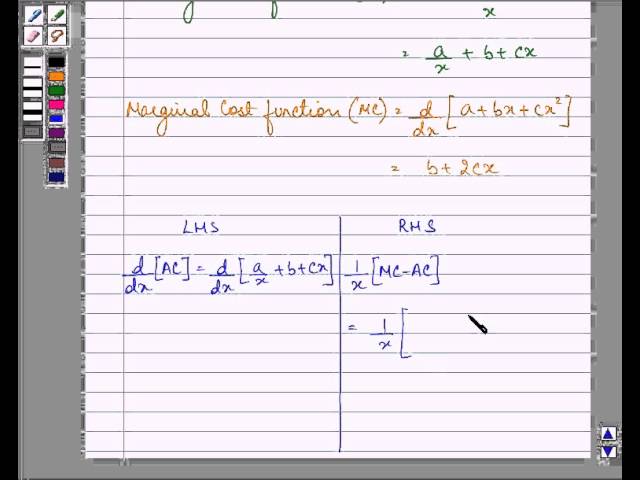 x
= a/x + b + cx
Marginal Cost function (MC) = d/dx [a + bx + cx²]
= b + 2cx
LHS RHS
d/dx [AC] = d/dx [a/x + b + cx] 1/x [MC-AC]
= 1/x [